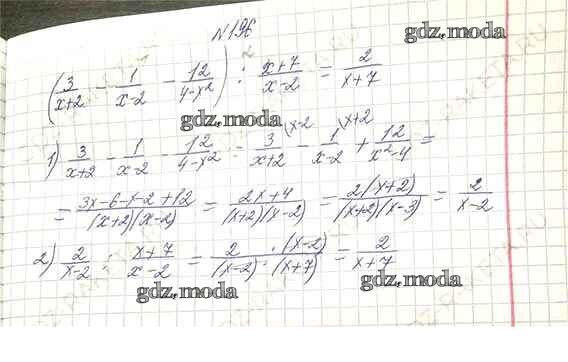 N196
gdz.moda
(3/(x+2) - 1/(x-2) - 12/(4-x²)) : (x+7)/(x-2) = 2/(x+7)
gdz.moda
1) 3/(x+2) - 1/(x-2) - 12/(4-x²) = 3/(x+2) (x-2 - 1/(x-2) (x+2 + 12/(x²-4) =
= (3x-6-x-2+12)/((x+2)(x-2)) = (2x+4)/((x+2)(x-2)) = 2(x+2)/((x+2)(x-3)) = 2/(x-2)
2) 2/(x-2) : (x+7)/(x-2) = 2·(x-2)/((x-2)·(x+7)) = 2/(x+7)
gdz.moda
gdz.moda